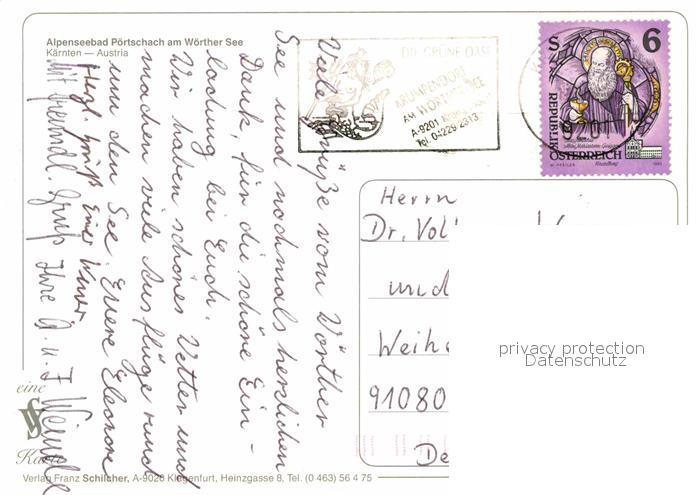 Alpenseebad Pörtschach am Wörther See
Kärnten — Austria
Viele Grüße vom Wörther
See und nochmals herzlichen
Dank, für die schöne Ein-
ladung bei Euch.
Wir haben schönes Wetter und
machen viele Ausflüge rund
um den See. Euere Eleonore
Herzl. Grüß Euer
Mit freundl. Gruß Ihre A. u. F.
DIE GRÜNE OASE
KRUMPENDORF
AM WÖRTHER SEE
A-9201
Tel. 04229-2313
S
6
REPUBLIK
ÖSTERREICH
9201
Herrn
Dr. Vol
und
Weih
91080
De
privacy protection
Datenschutz
eine
Karte
Verlag Franz Schilcher, A-9020 Klagenfurt, Heinzgasse 8, Tel. (0 463) 56 4 75